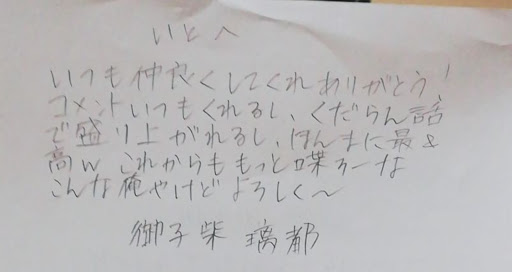 いとへ
いつも仲良くしてくれありがとう!
コメントいつもくれるし、くだらん話
で盛り上がれるし、ほんまに最&
高w これからももっと喋ろーな
こんな俺やけどよろしく〜
御子柴 璃都